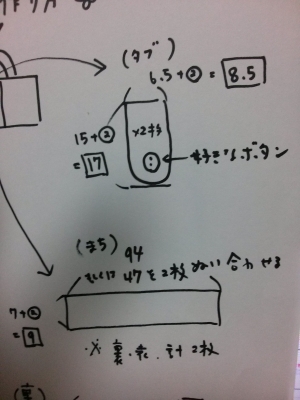 (タブ)
6.5+② = 8.5
15+②
= 17
×2枚
好きなボタン
(まち) 94
47を2枚ぬい合わせる
7+②
= 9
※裏・表、計2枚
(裏)